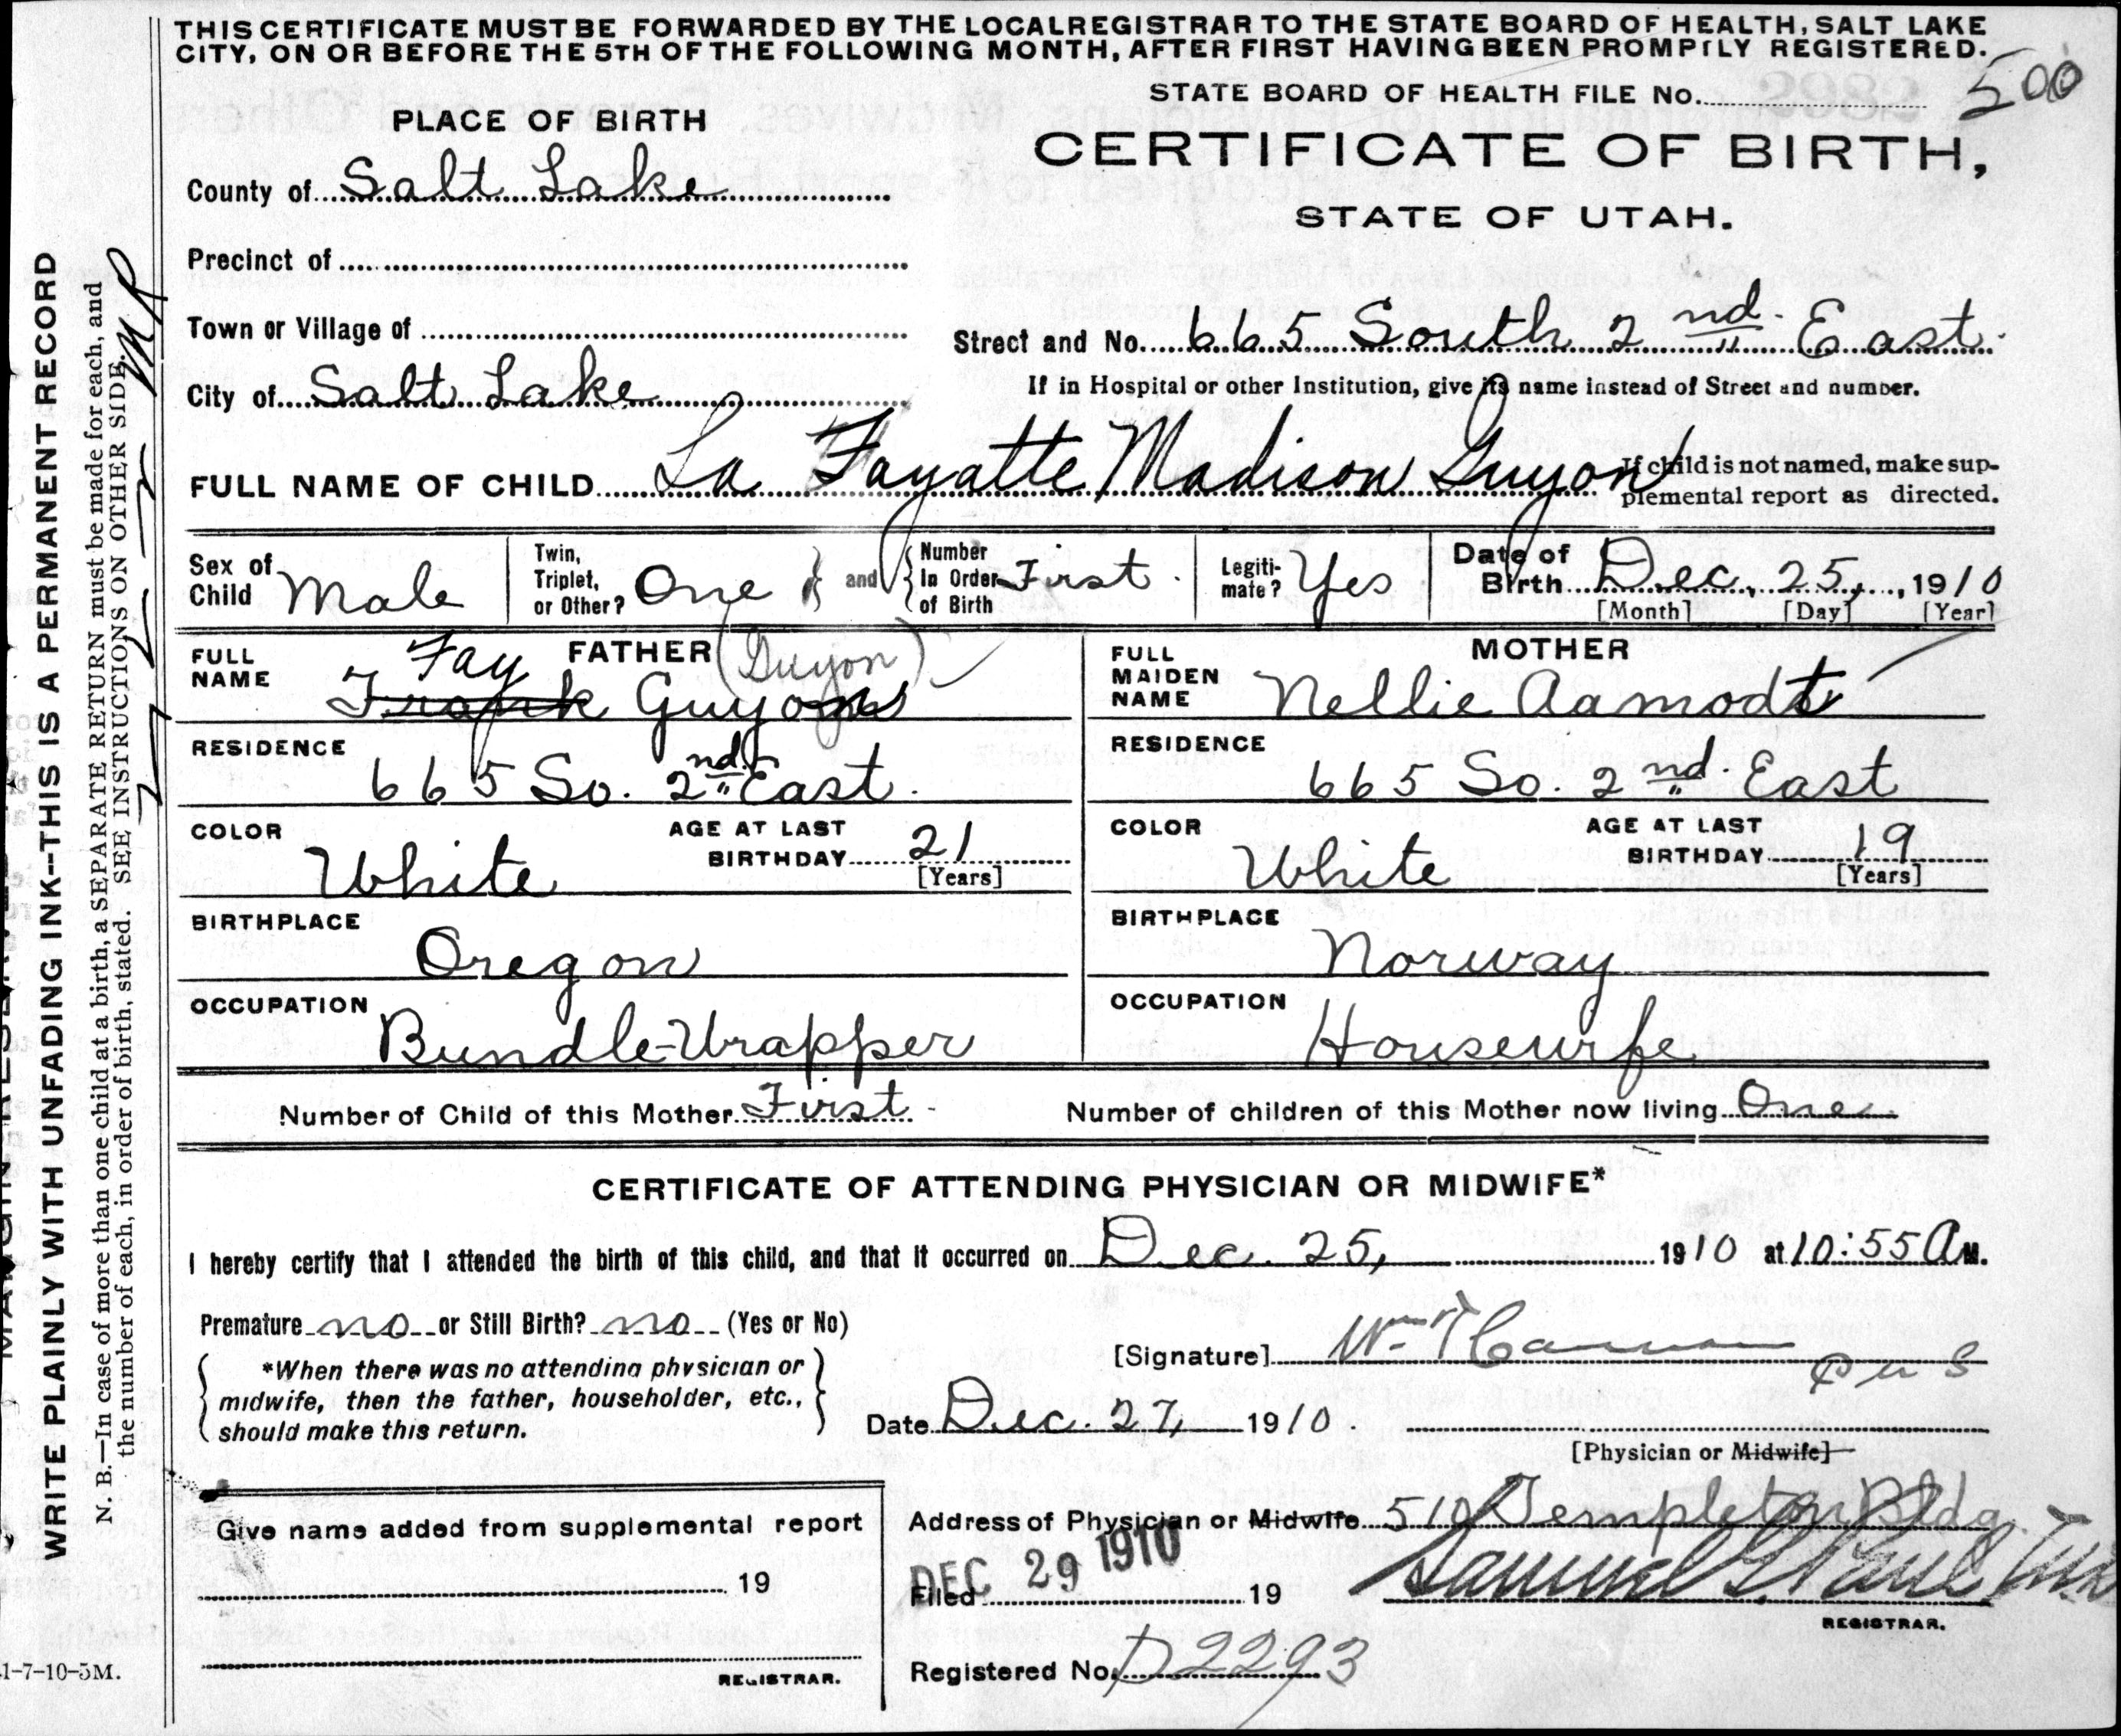 THIS CERTIFICATE MUST BE FORWARDED BY THE LOCAL REGISTRAR TO THE STATE BOARD OF HEALTH, SALT LAKE
CITY, ON OR BEFORE THE 5TH OF THE FOLLOWING MONTH, AFTER FIRST HAVING BEEN PROMPTLY REGISTERED.
STATE BOARD OF HEALTH FILE No. 500
PLACE OF BIRTH
CERTIFICATE OF BIRTH,
STATE OF UTAH.
County of Salt Lake
Precinct of
Town or Village of
Street and No. 665 South 2nd East
City of Salt Lake
If in Hospital or other Institution, give its name instead of Street and number.
FULL NAME OF CHILD La Fayatte Madison Guyon
If child is not named, make sup-
plemental report as directed.
Sex of Child Male
Twin, Triplet, or Other? One
and
Number In Order of Birth First
Legiti-mate? Yes
Date of Birth Dec. 25, 1910
[Month] [Day] [Year]
FATHER
FULL NAME Fay Frank Guyon
(Guyon)
MOTHER
FULL MAIDEN NAME Nellie Aamodt
RESIDENCE 665 So. 2nd East.
RESIDENCE 665 So. 2nd East
COLOR White
AGE AT LAST BIRTHDAY 21 [Years]
COLOR White
AGE AT LAST BIRTHDAY 19 [Years]
BIRTHPLACE Oregon
BIRTHPLACE Norway
OCCUPATION Bundle-Wrapper
OCCUPATION Housewife
Number of Child of this Mother First
Number of children of this Mother now living One
CERTIFICATE OF ATTENDING PHYSICIAN OR MIDWIFE*
I hereby certify that I attended the birth of this child, and that it occurred on Dec. 25, 1910 at 10:55 A M.
Premature no or Still Birth? no (Yes or No)
*When there was no attending physician or
midwife, then the father, householder, etc.,
should make this return.
[Signature] Wm T
Date Dec. 27, 1910.
[Physician or Midwife]
Give name added from supplemental report
19
REGISTRAR.
Address of Physician or Midwife 510 Templeton Bldg.
Filed DEC 29 1910 19
Samuel G. Paul
REGISTRAR.
Registered No. D2293
1-7-10-5M.
WRITE PLAINLY WITH UNFADING INK--THIS IS A PERMANENT RECORD
N. B.—In case of more than one child at a birth, a SEPARATE RETURN must be made for each, and
the number of each, in order of birth, stated. SEE INSTRUCTIONS ON OTHER SIDE.